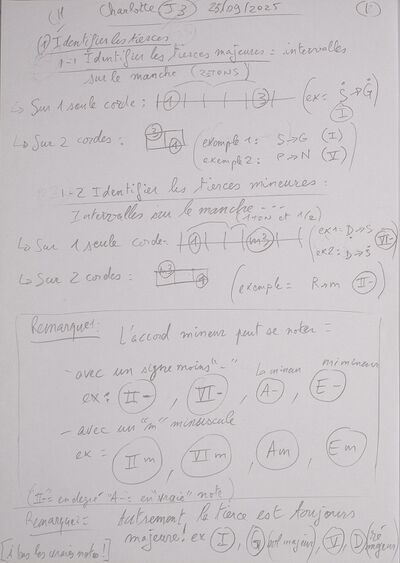 Charlotte J3 25/09/2025 1
① Identifier les tierces
1-1 Identifier les tierces majeures = intervalles
sur le manche (2 TONS)
↳ Sur 1 seule corde : 1 3 (ex = S → G
I
↳ Sur 2 cordes : 3 1 (exemple 1 : S → G (I)
exemple 2 : P → N (V)
1-2 Identifier les tierces mineures :
Intervalles sur le manche (1 TON et 1/2)
↳ Sur 1 seule corde 1 m3 (ex 1 = D → S VI-
ex 2 = D → S
↳ Sur 2 cordes : m3 1 (exemple = R → m II-)
Remarque : L'accord mineur peut se noter =
- avec un signe moins "-" la mineur mi mineur
ex : II- , VI- , A- , E-
- avec un "m" minuscule
ex = II m , VI m , A m , E m
(II- = en degré "A-" = en "vraie" note)
Remarque = Autrement, la tierce est toujours
majeure ! ex I , G (sol majeur) , V , D (ré majeur)
[à bas les vraies notes !]